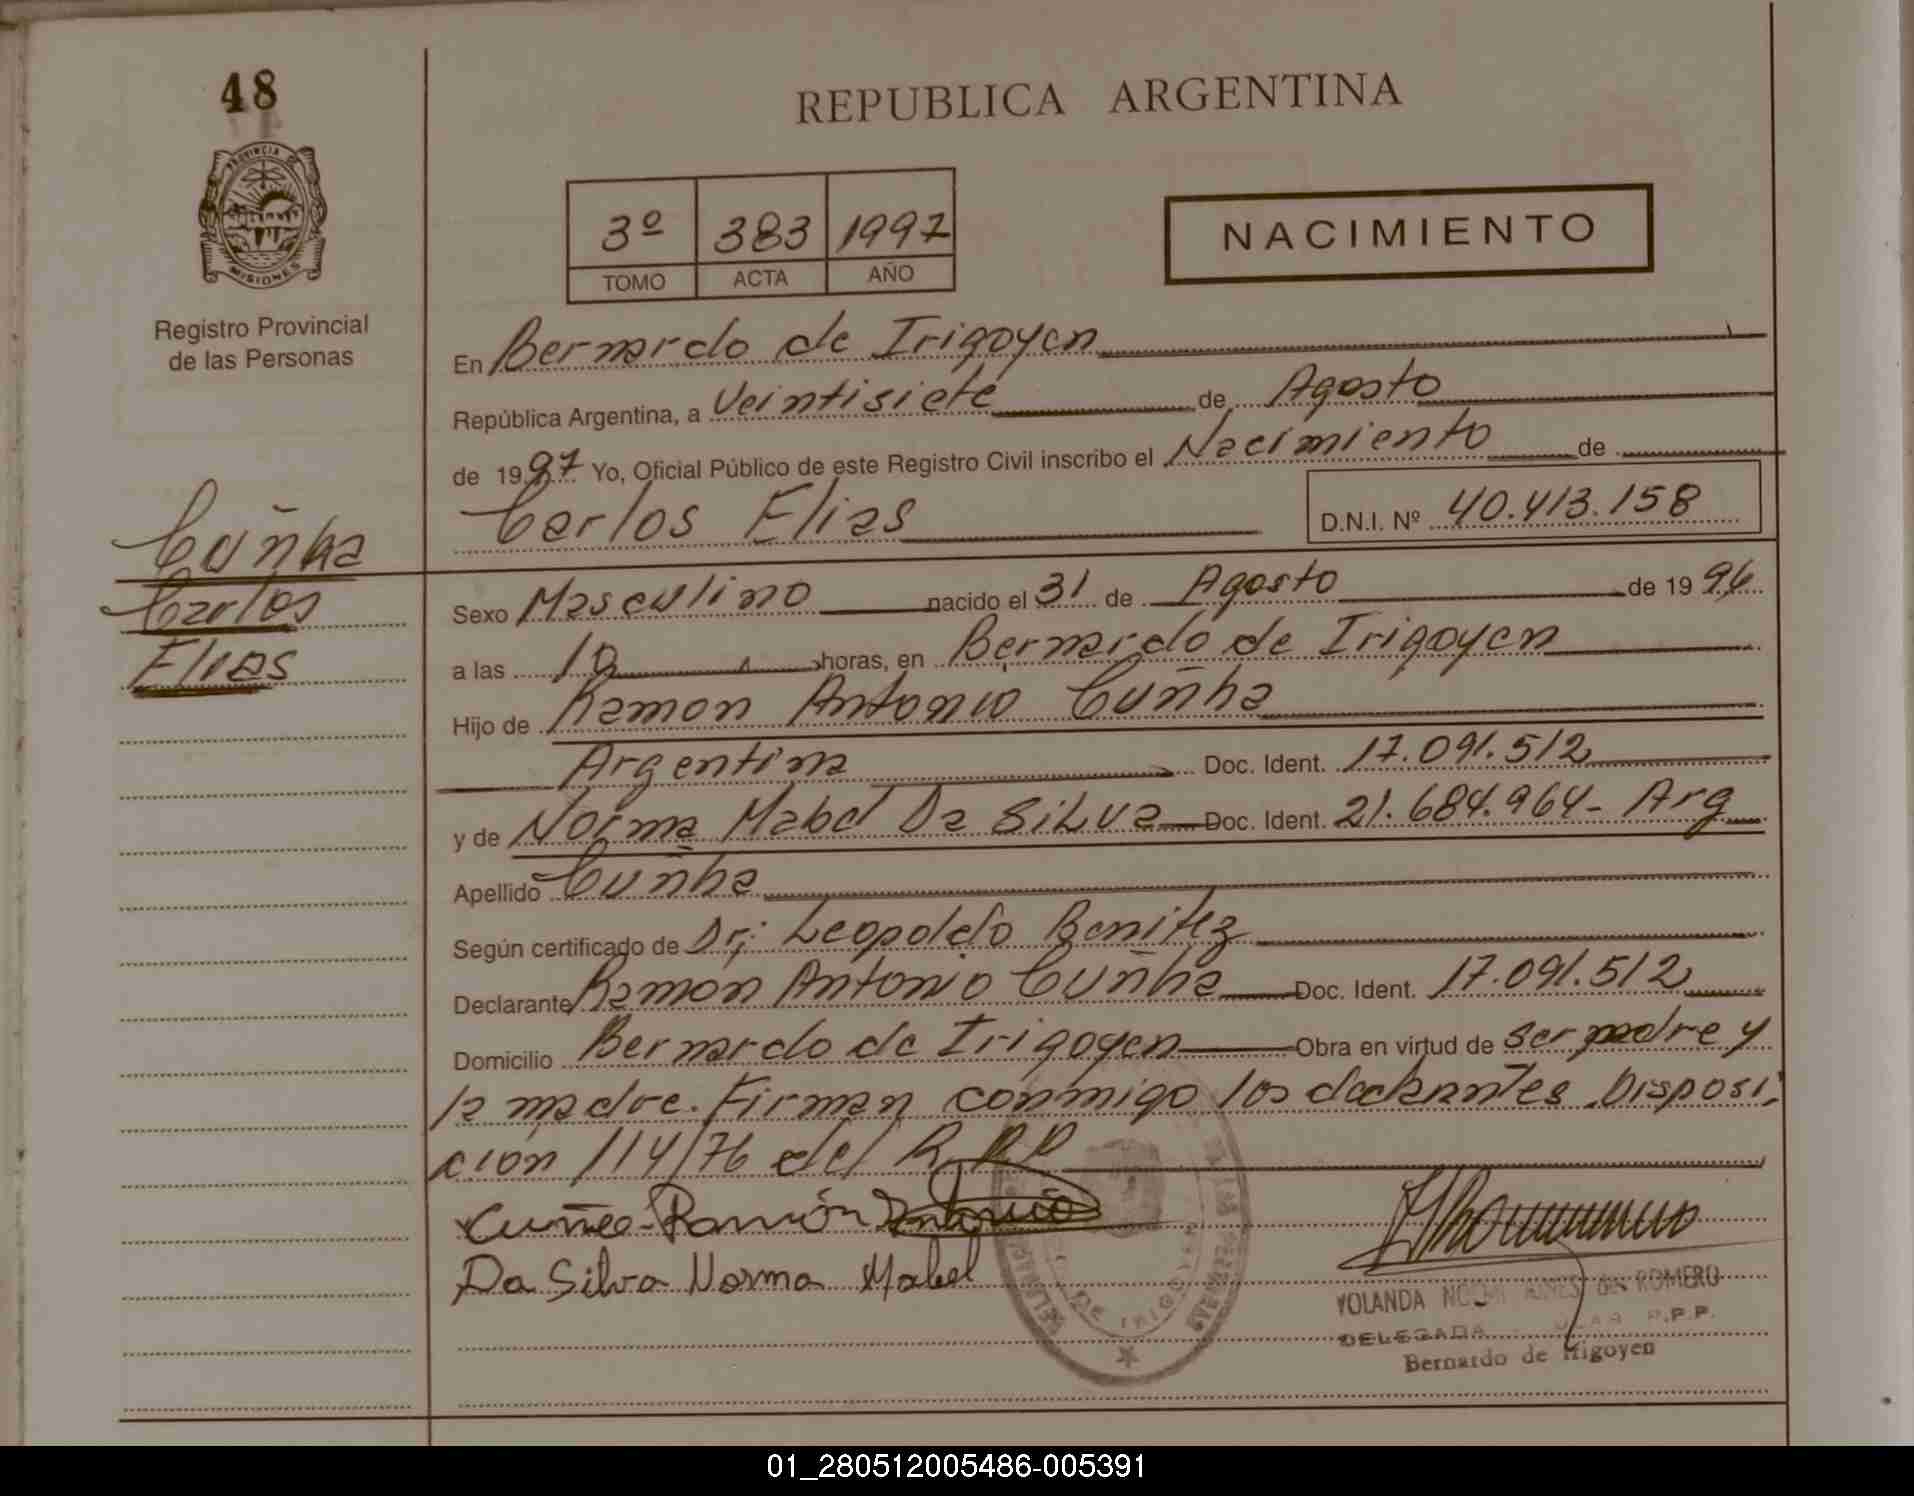 48
REPUBLICA ARGENTINA
PROVINCIA DE
MISIONES
Registro Provincial
de las Personas
3º 383 1997
TOMO ACTA AÑO
NACIMIENTO
En Bernardo de Irigoyen
República Argentina, a Veintisiete de Agosto
de 1997 Yo, Oficial Público de este Registro Civil inscribo el Nacimiento de
Carlos Elias
D.N.I. Nº 40.413.158
Cuñha
Carlos
Elias
Sexo Masculino nacido el 31 de Agosto de 1996
a las 10 horas, en Bernardo de Irigoyen
Hijo de Ramon Antonio Cuñha
Argentina Doc. Ident. 17.091.512
y de Norma Mabel Da SiLva Doc. Ident. 21.684.964- Arg
Apellido Cuñha
Según certificado de Dr; Leopoldo Benitez
Declarante Ramon Antonio Cuñha Doc. Ident. 17.091.512
Domicilio Bernardo de Irigoyen Obra en virtud de ser padre y
la madre. Firman conmigo los Disposi
ción 114/76 del R.P.P
Ramón Antonio
Da Silva Norma Mabel
YOLANDA de ROMERO
DELEGADA R.P.P.
Bernardo de Irigoyen
DE IRIGOYEN
01_280512005486-005391